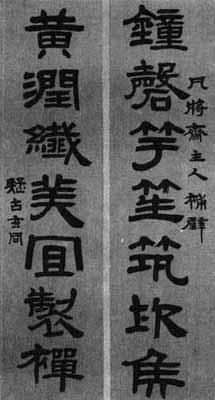 凡將齋主人補壁
鐘磬竽笙筑坎矦
黄潤纖美冝製襌
疑古玄同